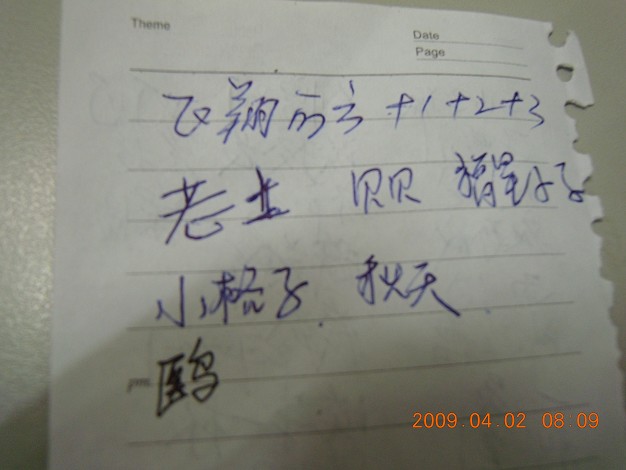 Theme
Date
Page
飞翔而言 +1+2+3
老土 贝贝 福星小子
小格子 秋天
pm.
鸥
2009.04.02 08:09